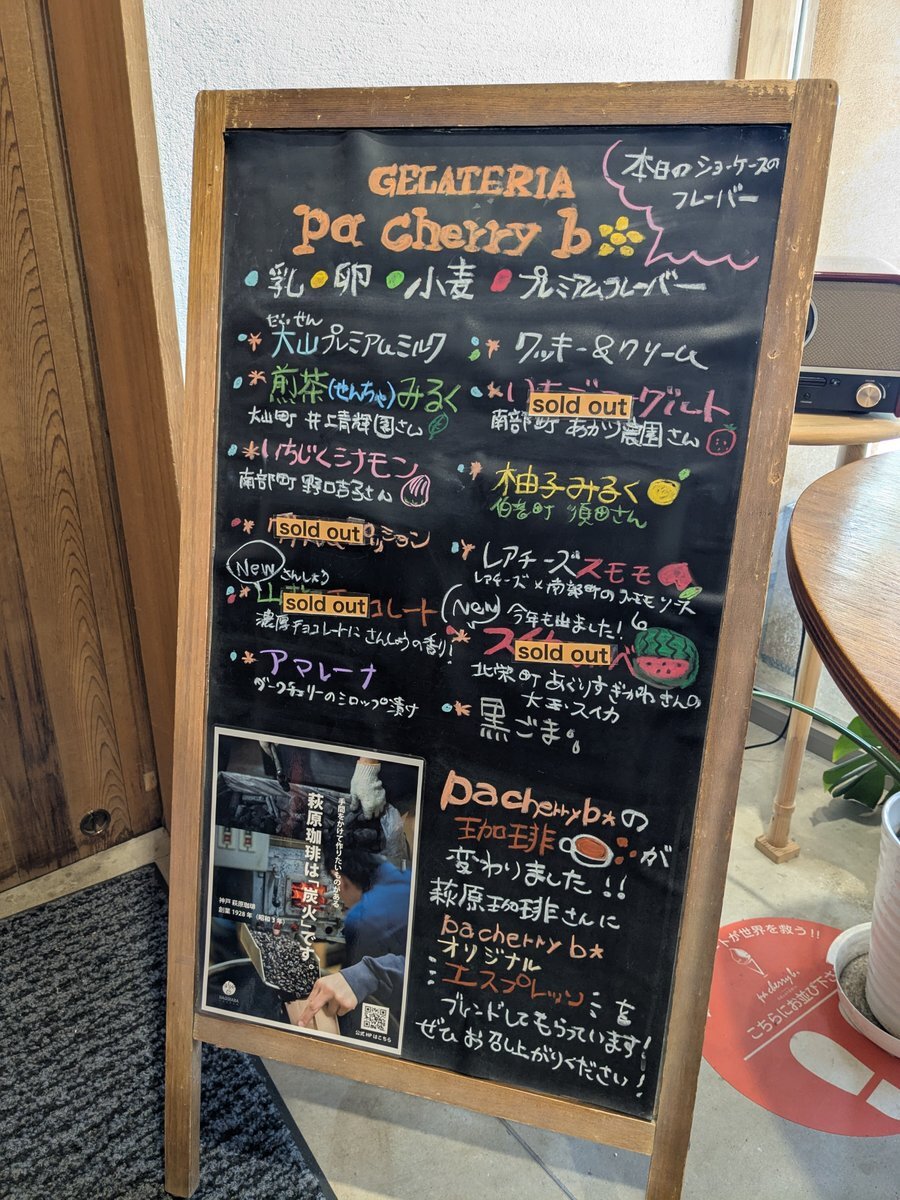 本日のショーケースの
フレーバー
GELATERIA
pa cherry b
乳 卵 小麦 プレミアムフレーバー
だいせん
大山プレミアムミルク
煎茶(せんちゃ)みるく
大山町 井上青輝園さん
いちじくシナモン
南部町 野口吉子さん
sold out
ション
New さんしょう
sold out
コレート
濃厚チョコレートに さんしょうの香り!
アマレーナ
ダークチェリーのシロップ漬け
クッキー&クリーム
いちご
sold out
グルト
南部町 あかり農園さん
柚子みるく
伯耆町 須田さん
レアチーズスモモ
レアチーズ×南部町のスモモソース
New 今年も出ました!
スイカ
sold out
べ
北栄町 あぐりすぎかねさんの
大玉スイカ
黒ごま
pacherryb*の
珈琲が
変わりました!!
萩原珈琲さんに
pacherryb*
オリジナル
エスプレッソを
ブレンドしてもらっています!
ぜひお召し上がりください!
手間をかけて作りたいものがある
萩原珈琲は「炭火」です。
神戸 萩原珈琲
創業 1928 年(昭和 3 年)
HAGIHARA
公式 HP はこちら
が世界を救う!!
pa cherry b.
こちらにお並び下さ